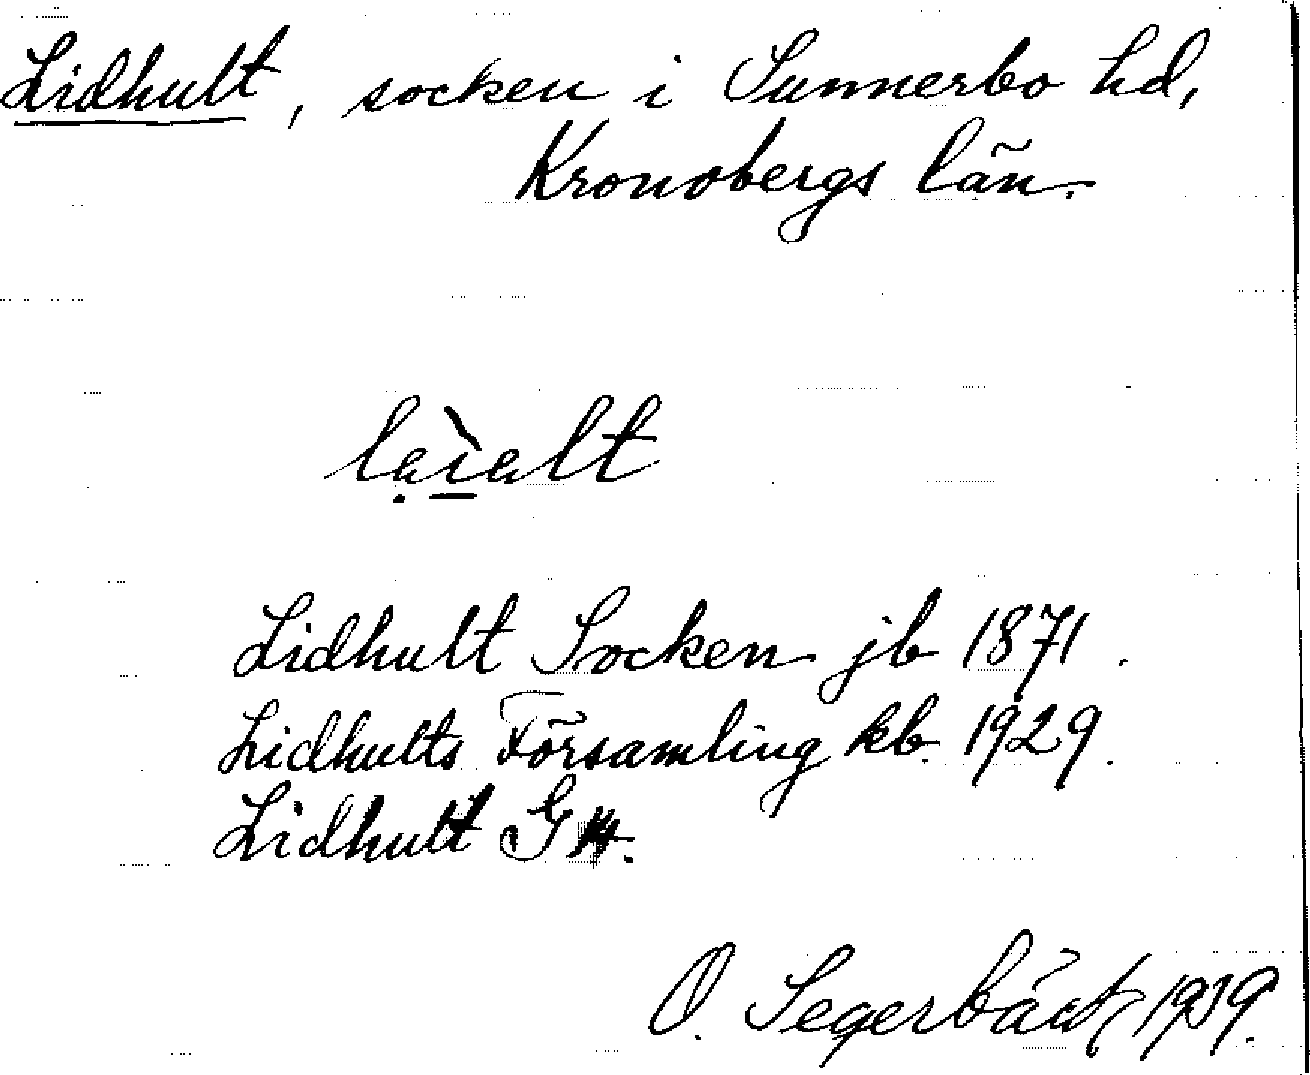 Lidhult, socken i Sunnerbo hd,
Kronobergs län.
Lidhult Socken jb 1871.
Lidhults Församling kb. 1929.
Lidhult G
O. Segerbäck 1939.